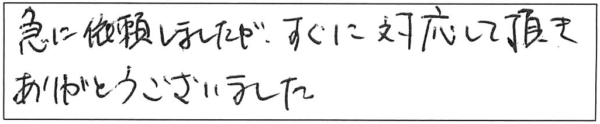 急に依頼しましたが、すぐに対応して頂き
ありがとうございました